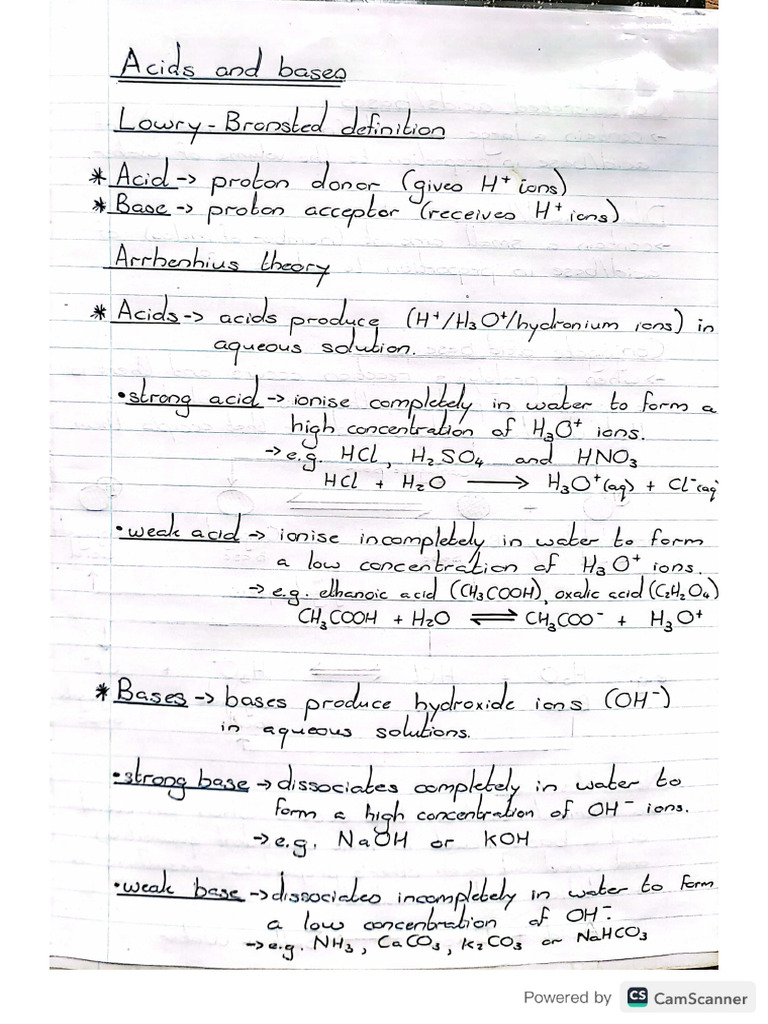 Acids and bases
Lowry-Bronsted definition
* Acid -> proton donor (gives H⁺ ions)
* Base -> proton acceptor (receives H⁺ ions)
Arrhenhius theory
* Acids -> acids produce (H⁺/H₃O⁺/hydronium ions) in
aqueous solution.
• strong acid -> ionise completely in water to form a
high concentration of H₃O⁺ ions.
-> e.g. HCl, H₂SO₄ and HNO₃
HCl + H₂O ⟶ H₃O⁺(aq) + Cl⁻(aq)
• weak acid -> ionise incompletely in water to form
a low concentration of H₃O⁺ ions.
-> e.g. ethanoic acid (CH₃COOH), oxalic acid (C₂H₂O₄)
CH₃COOH + H₂O ⇌ CH₃COO⁻ + H₃O⁺
* Bases -> bases produce hydroxide ions (OH⁻)
in aqueous solutions.
• strong base -> dissociates completely in water to
form a high concentration of OH⁻ ions.
-> e.g. NaOH or KOH
• weak base -> dissociates incompletely in water to form
a low concentration of OH⁻.
-> e.g. NH₃, CaCO₃, K₂CO₃ or NaHCO₃
Powered by CS CamScanner